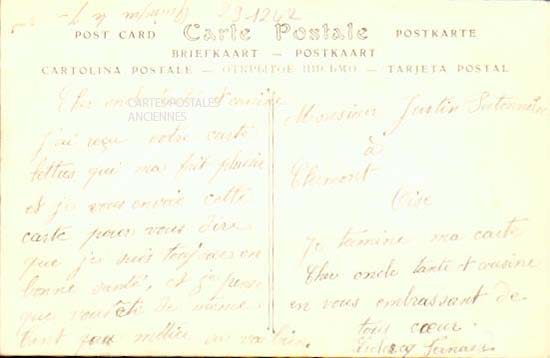 Carte Postale
POST CARD
POSTKARTE
BRIEFKAART — POSTKAART
CARTOLINA POSTALE — ОТКРЫТОЕ ПИСЬМО — TARJETA POSTAL
CARTES POSTALES
ANCIENNES
Cher oncle tante et cousine
J'ai reçu votre carte
lettre qui ma fait plaisir
et je vous envoie cette
carte pour vous dire
que je suis toujours en
bonne santé, et je pense
que vous de même
Monsieur Justin
à
Oise
Je termine ma carte
Cher oncle tante et cousine
en vous embrassant de
tous cœur.